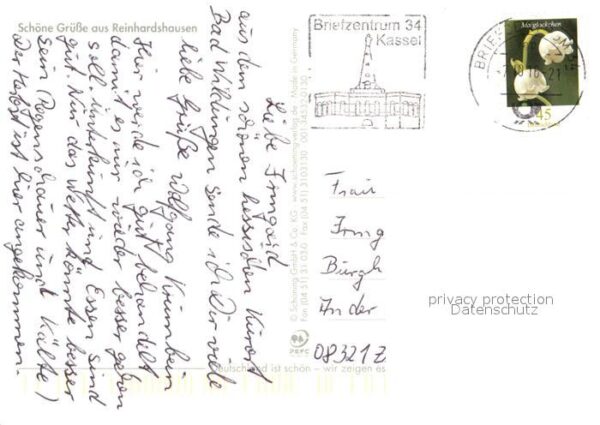 Schöne Grüße aus Reinhardshausen
Liebe Irmgard
aus dem schönen hessischen Kurort
Bad Wildungen sende ich Dir viele
liebe Grüße Wolfgang Krumbein
Hier werde ich gut behandelt
damit es mir wieder besser gehen
soll. Unterkunft und Essen sind
gut. Nur das Wetter könnte besser
sein (Regenschauer und Kälte)
Der Herbst ist hier angekommen.
Briefzentrum 34
Kassel
Maiglöckchen
45
BRIEF
21
Frau
Irmg
Burgh
An der
08321 Z
privacy protection
Datenschutz
© Schöning GmbH & Co. KG · www.schoening-verlag.de · Made in Germany
Fon (04 51) 31 03-0 · Fax (04 51) 3103130
PEFC
Deutschland ist schön – wir zeigen es